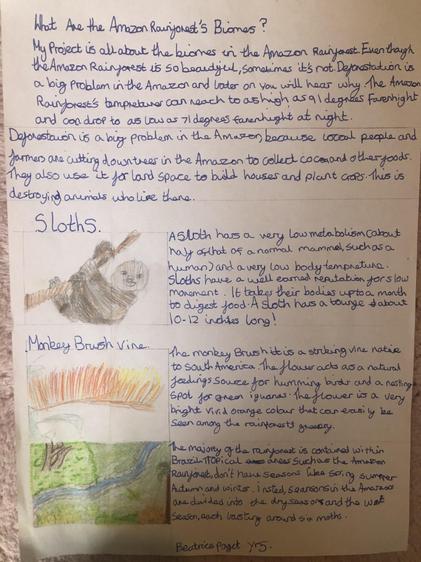 What Are the Amazon Rainforest's Biomes?
My Project is all about the biomes in the Amazon Rainforest. Even though
the Amazon Rainforest is so beautiful, sometimes it's not. Deforestation is
a big problem in the Amazon and later on you will hear why. The Amazon
Rainforest's tempreture can reach to as high as 91 degrees Farenhight
and can drop to as low as 71 degrees farenhight at night.
Deforestation is a big problem in the Amazon, because local people and
farmers are cutting down trees in the Amazon to collect cocoa and other foods.
They also use it for land space to build houses and plant crops. This is
destroying animals who live there.
Sloths.
A sloth has a very low metabolism (about
half of that of a normal mammel, such as a
human) and a very low body tempreture.
Sloths have a well earned reputation for slow
movement. It takes their bodies up to a month
to digest food. A sloth has a tounge about
10-12 inches long!
Monkey Brush vine.
The monkey Brush it is a striking vine native
to South America. The flower acts as a natural
feedings source for humming birds and a nesting
spot for green iguanas. The flower is a very
bright vivid orange colour that can easily be
seen among the rainforests greenery.
The majority of the rainforest is contained within
Brazil. Tropical areas such as the Amazon
Rainforest, don't have seasons like spring summer
Autumn and winter. Insted, seansons in the Amazon
are divided into the dry seasons and the wet
season, each lasting around six moths.
Beatrice Paget Yr5.